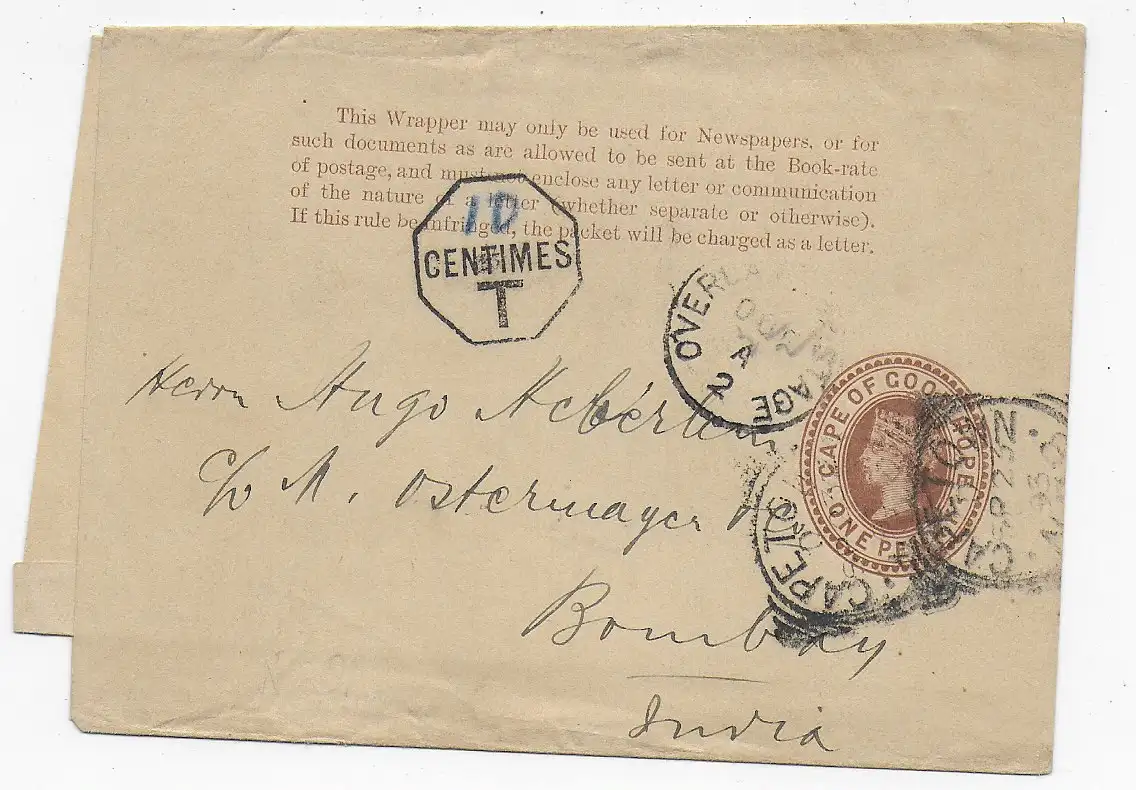 This Wrapper may only be used for Newspapers, or for
such documents as are allowed to be sent at the Book-rate
of postage, and must not enclose any letter or communication
of the nature of a letter (whether separate or otherwise).
If this rule be infringed, the packet will be charged as a letter.
10
CENTIMES
T
OVERLA
A
2
AGE
CAPE OF GOOD HOPE
ONE PE
CAPE
SP 23
95
Herrn Hugo
c/o M. Ostermayer
Bombay
India